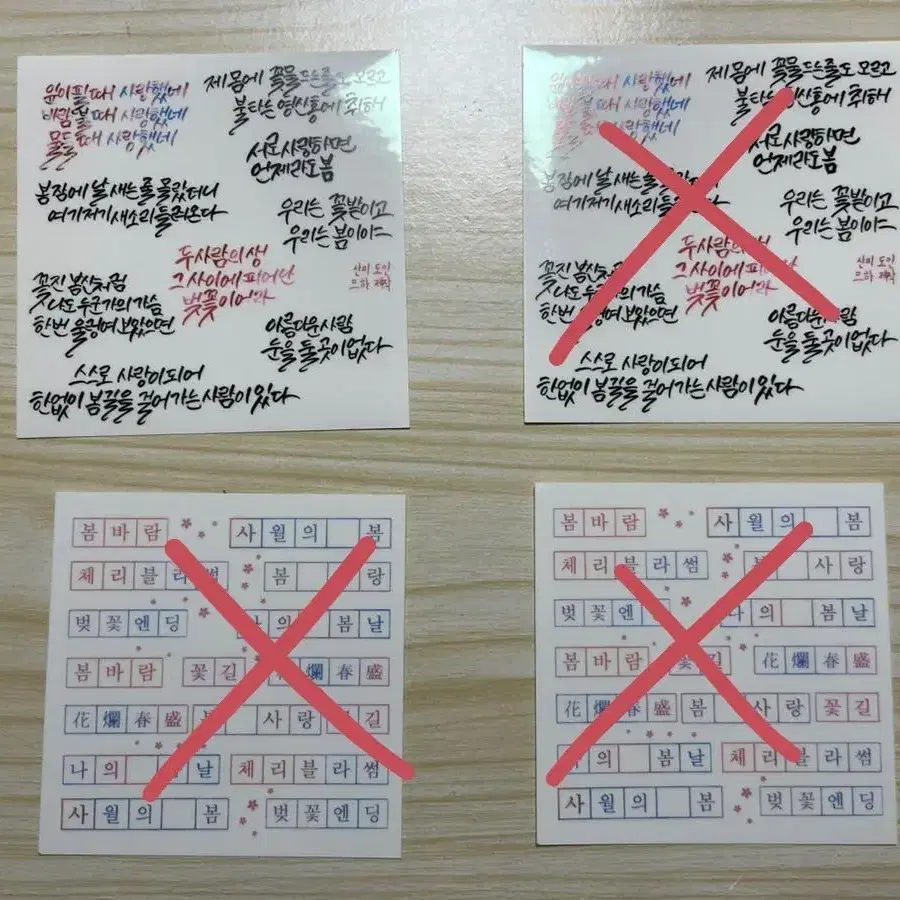 잎이 필 때 사랑했네
바람 불 때 사랑했네
물들 때 사랑했네
제 몸에 꽃물 드는 줄도 모르고
불타는 영산홍에 취해
서로 사랑하면
언제라도 봄
봄잠에 날 새는 줄 몰랐더니
여기저기 새소리 들려온다
우리는 꽃밭이고
우리는 봄이야
두 사람의 생
그 사이에 피어난
벚꽃이어라
꽃진 봄산처럼
나도 누군가의 가슴
한번 울렁여 보았으면
아름다운 사람
눈을 둘 곳이 없다
스스로 사랑이 되어
한없이 봄길을 걸어가는 사람이 있다
사랑했네
사랑했네
사랑했네
제 몸에 꽃물 드는 줄도 모르고
불타는 영산홍에 취해
서로 사랑하면
언제라도 봄
봄잠에 날 새는 줄
여기저기 새소리 들려온다
우리는 꽃밭이고
우리는 봄이야
두 사람의 생
그 사이에
벚꽃이어라
꽃진 봄산처럼
나도 누군가의 가슴
한번 보았으면
아름다운 사람
눈을 둘 곳이 없다
스스로 사랑이 되어
한없이 봄길을 걸어가는 사람이 있다
봄바람 사월의 봄
체리블라썸 봄 랑
벚꽃엔딩 의 봄날
봄바람 꽃길 爛春盛
花爛春盛 사랑 길
나의 날 체리블라썸
사월의 봄 벚꽃엔딩
봄바람 사월의 봄
체리블라썸 사랑
벚꽃엔 나의 봄날
봄바람 꽃길 花爛春盛
花爛春盛 봄 사랑 꽃길
의 봄날 체리블라썸
사월의 봄 벚꽃엔딩